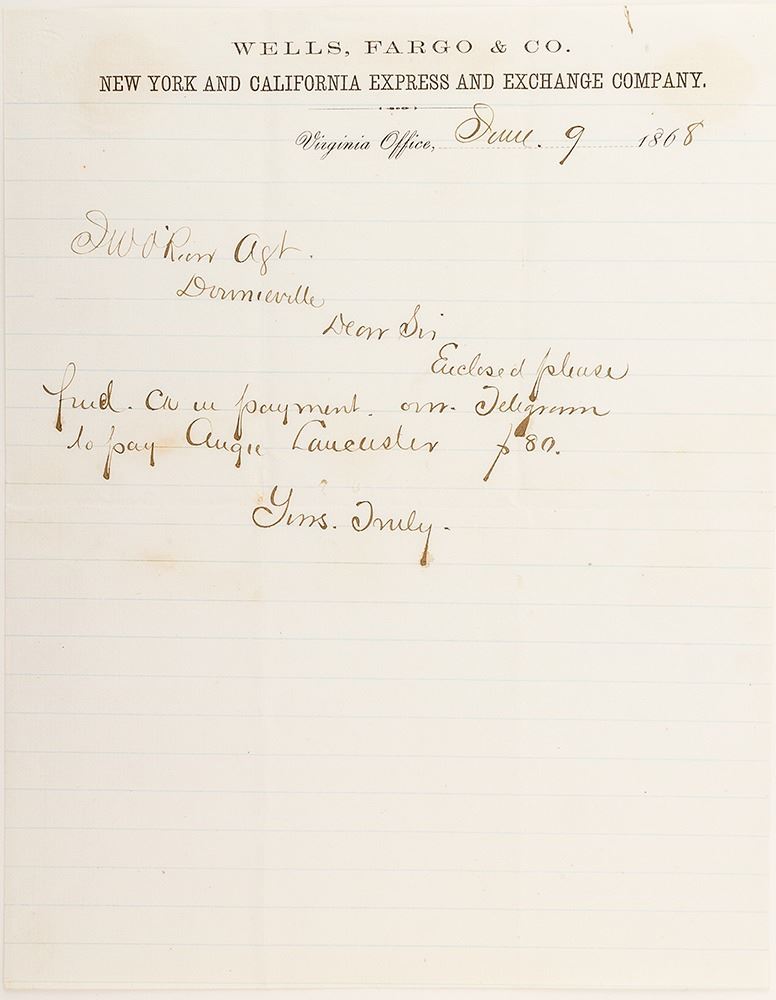 WELLS, FARGO & CO.
NEW YORK AND CALIFORNIA EXPRESS AND EXCHANGE COMPANY.
Virginia Office, June. 9 1868
Agt.
Downieville
Dear Sir
Enclosed please
find. Ck in payment. our. Telegram
to pay Angie Lancaster $80.
Yours. Truly.